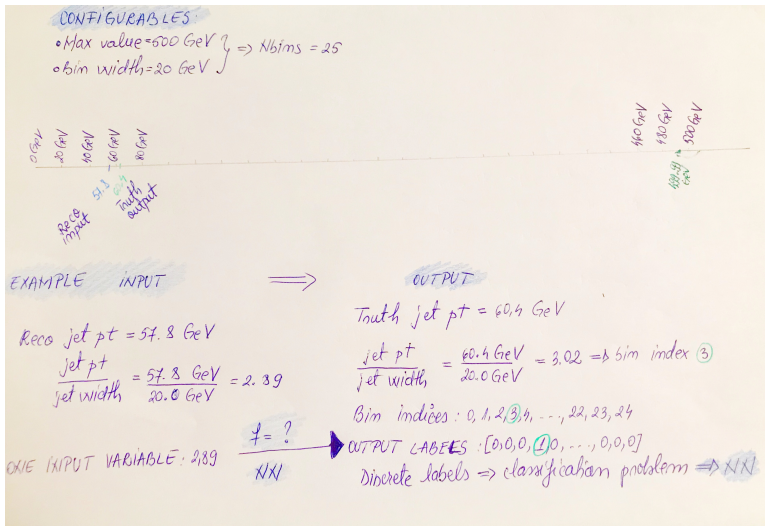 CONFIGURABLES:
• Max value=500 GeV } ⇒ Nbins = 25
• Bin width=20 GeV
0 GeV 20 GeV 40 GeV 60 GeV 80 GeV 460 GeV 480 GeV 500 GeV
57.8 60.4 499.99 GeV
Reco input Truth output
EXAMPLE INPUT ⇒ OUTPUT
Reco jet pt = 57.8 GeV
jet pt / jet width = 57.8 GeV / 20.0 GeV = 2.89
ONE INPUT VARIABLE: 2,89
f = ?
NN
Truth jet pt = 60,4 GeV
jet pt / jet width = 60.4 GeV / 20.0 GeV = 3.02 ⇒ bin index 3
Bin indices: 0, 1, 2, 3, 4, ..., 22, 23, 24
OUTPUT LABELS: [0,0,0,1,0,...,0,0,0]
Discrete labels ⇒ classification problem ⇒ NN